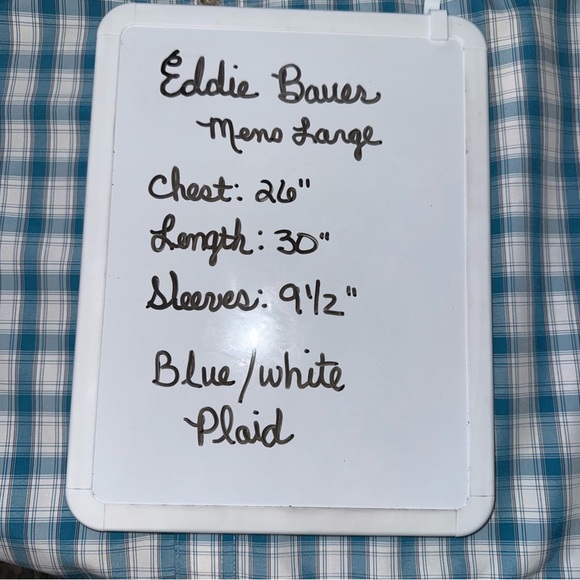 Eddie Bauer
Mens Large
Chest: 26"
Length: 30"
Sleeves: 9 1/2"
Blue/white
Plaid